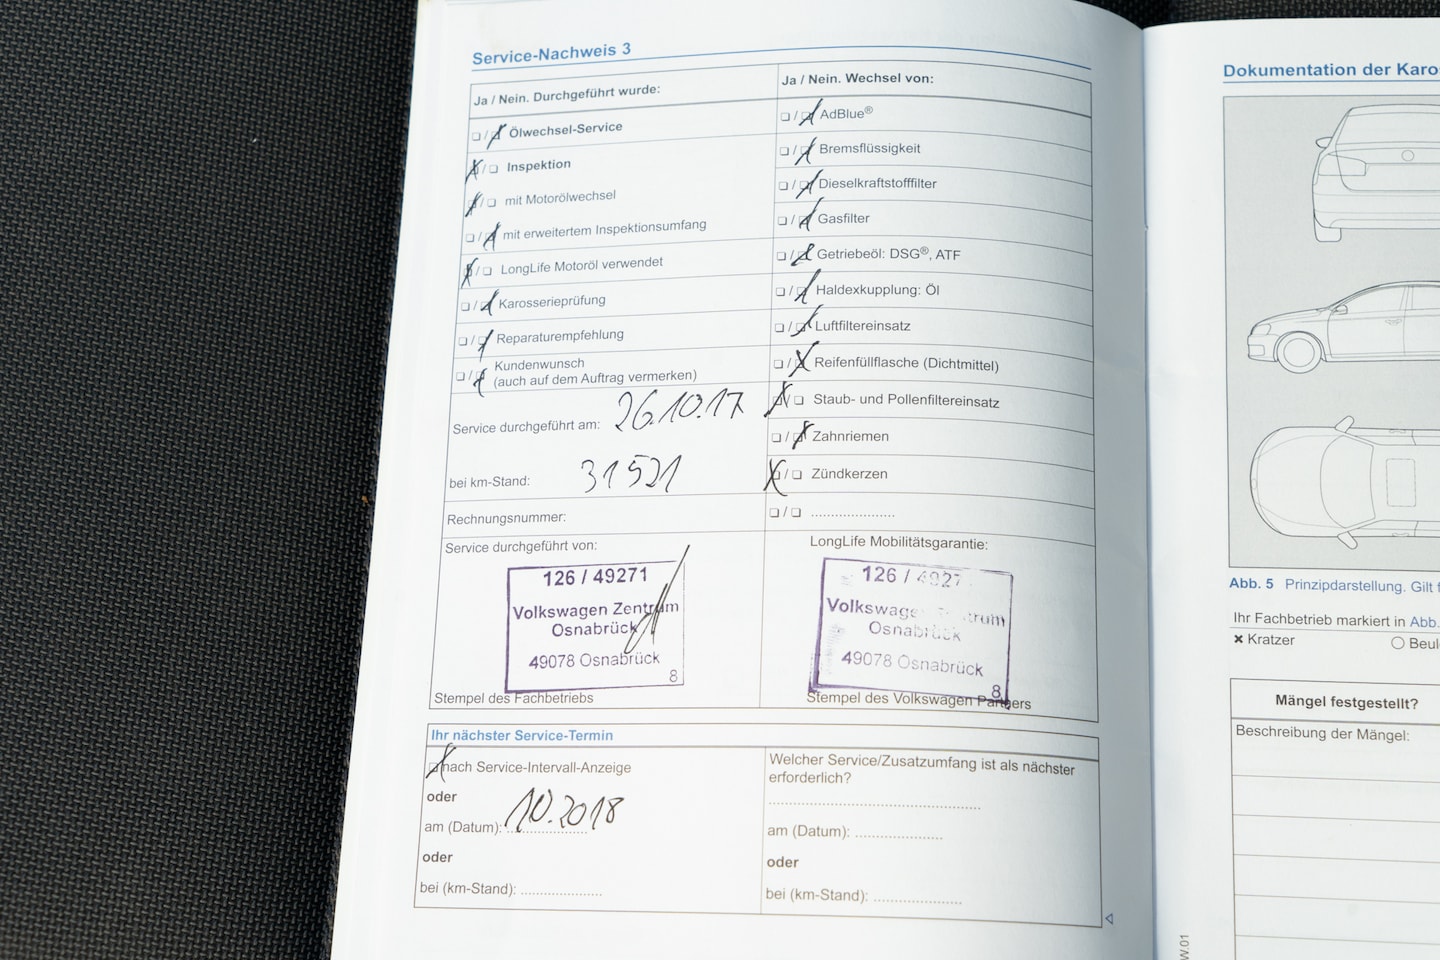 Service-Nachweis 3
Ja / Nein. Durchgeführt wurde:
☐ / ☒ Ölwechsel-Service
☒ / ☐ Inspektion
☒ / ☐ mit Motorölwechsel
☐ / ☒ mit erweitertem Inspektionsumfang
☒ / ☐ LongLife Motoröl verwendet
☐ / ☒ Karosserieprüfung
☐ / ☒ Reparaturempfehlung
☐ / ☒ Kundenwunsch
(auch auf dem Auftrag vermerken)
Service durchgeführt am: 26.10.17
bei km-Stand: 31521
Rechnungsnummer:
Service durchgeführt von:
126 / 49271
Volkswagen Zentrum
Osnabrück
49078 Osnabrück
8
Stempel des Fachbetriebs
Ja / Nein. Wechsel von:
☐ / ☒ AdBlue®
☐ / ☒ Bremsflüssigkeit
☐ / ☒ Dieselkraftstofffilter
☐ / ☒ Gasfilter
☐ / ☒ Getriebeöl: DSG®, ATF
☐ / ☒ Haldexkupplung: Öl
☐ / ☒ Luftfiltereinsatz
☐ / ☒ Reifenfüllflasche (Dichtmittel)
☒ / ☐ Staub- und Pollenfiltereinsatz
☐ / ☒ Zahnriemen
☒ / ☐ Zündkerzen
☐ / ☐ .....................
LongLife Mobilitätsgarantie:
126 / 4927
Volkswage trum
Osnabrück
49078 Osnabrück
8
Stempel des Volkswagen Partners
Ihr nächster Service-Termin
☒ nach Service-Intervall-Anzeige
oder
am (Datum): 10.2018
oder
bei (km-Stand): ....................
Welcher Service/Zusatzumfang ist als nächster
erforderlich?
.....................................................
am (Datum): ......................
oder
bei (km-Stand): ......................
Dokumentation der Karos
Abb. 5 Prinzipdarstellung. Gilt f
Ihr Fachbetrieb markiert in Abb.
× Kratzer ○ Beul
Mängel festgestellt?
Beschreibung der Mängel:
W.01